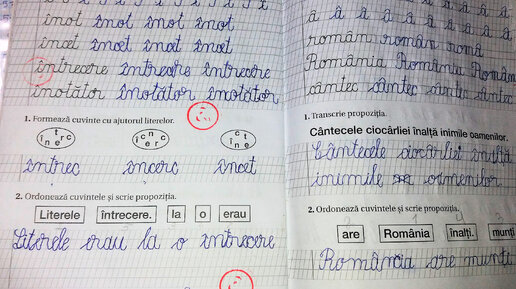 înot înot înot înot
încet încet încet încet
întrecere întrecere întrecere
înotător înotător înotător
1. Formează cuvinte cu ajutorul literelor.
întrec încerc încet
2. Ordonează cuvintele și scrie propoziția.
Literele întrecere. la o erau
Literele erau la o întrecere
â â â â â â â â
român român româ
România România Român
cântec cântec cântec cântec
1. Transcrie propoziția.
Cântecele ciocârliei înalță inimile oamenilor.
Cântecele ciocârliei înalță
inimile oamenilor
2. Ordonează cuvintele și scrie propoziția.
2 1 4 3
are România înalți. munți
România are munți